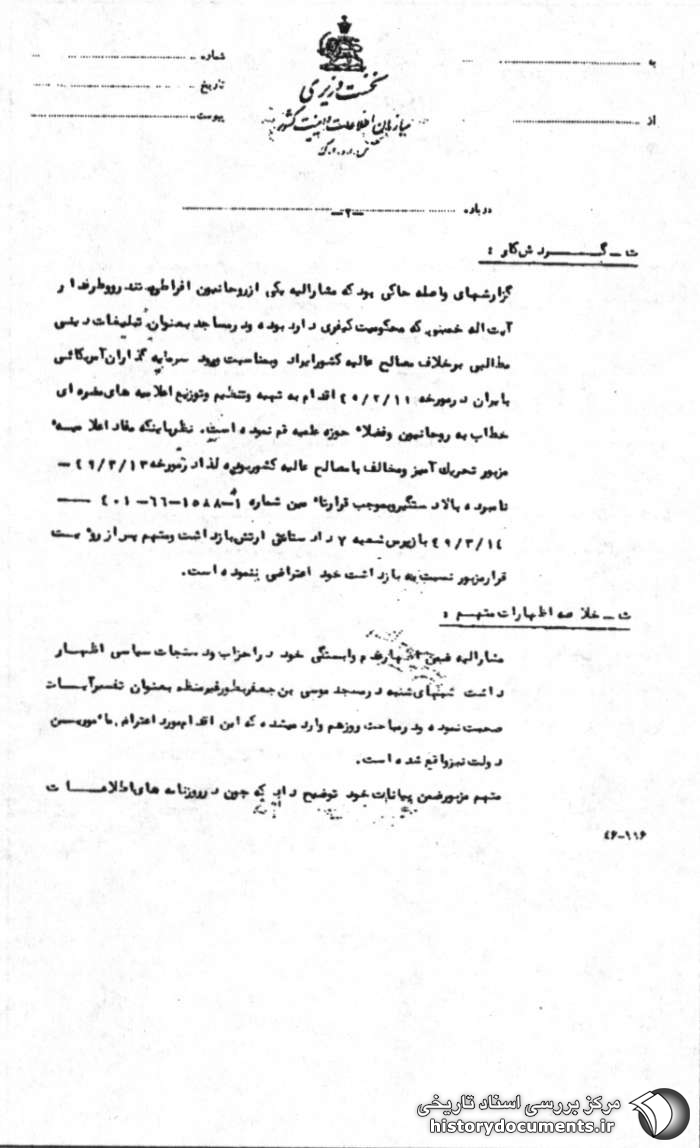 نخست وزیری
سازمان اطلاعات و امنیت کشور
س.ا.و.ا.ک
به
شماره
تاریخ
از
پیوست
درباره
-۲-
ت - گردش کار :
گزارشهای واصله حاکی بود که مشارالیه یکی از روحانیون افراطی و تندرو و طرفدار
آیت اله خمینی که محکومیت کیفری دارد بوده و در مساجد بعنوان تبلیغات دینی
مطالبی برخلاف مصالح عالیه کشور ایراد و بمناسبت ورود سرمایه گذاران آمریکائی
بایران در مورخه ۴۹/۲/۱۱ اقدام به تهیه و تنظیم و توزیع اعلامیه های مضره ای
خطاب به روحانیون و فضلاء حوزه علمیه قم نموده است. نظر باینکه مفاد اعلامیه
مزبور تحریک آمیز و مخالف با مصالح عالیه کشور بوده لذا در مورخه ۴۹/۳/۱۳ -
نامبرده بالا دستگیر و بموجب قرار تأمین شماره ۱-۱۵۸۸-۶۶-۴۰۱ -
۴۹/۳/۱۴ بازپرس شعبه ۷ دادستانی ارتش بازداشت و متهم پس از رؤیت
قرار مزبور نسبت به بازداشت خود اعتراضی ننموده است.
ث - خلاصه اظهارات متهم :
مشارالیه ضمن اظهار عدم وابستگی خود در احزاب و دستجات سیاسی اظهار
داشت شبهای شنبه در مسجد موسی بن جعفر بطور غیر منظم بعنوان تفسیر آیات
صحبت نموده و در مباحث روز هم وارد میشده که این اقدام مورد اعتراض مأمورین
دولت نیز واقع شده است.
متهم مزبور ضمن بیانات خود توضیح داد که چون در روزنامه های اطلاعات
۴۶-۱۱۶
مرکز بررسی اسناد تاریخی
historydocuments.ir